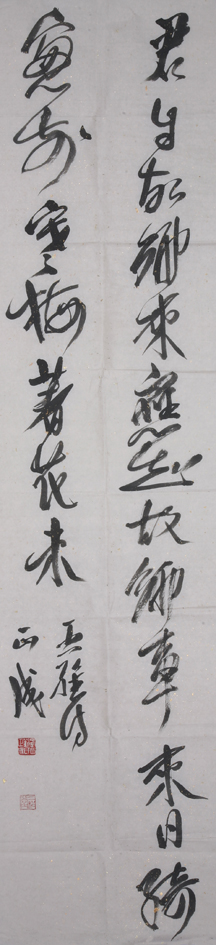 君自故鄉來應知故鄉事來日綺
窗前寒梅著花未
王維詩
正成